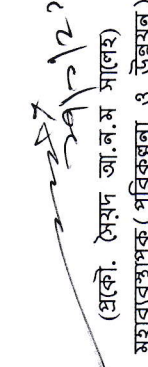 (প্রকৌ. সৈয়দ আ.ন.ম সালেহ)
মহাব্যবস্থাপক ( পরিকল্পনা ও উন্নয়ন)